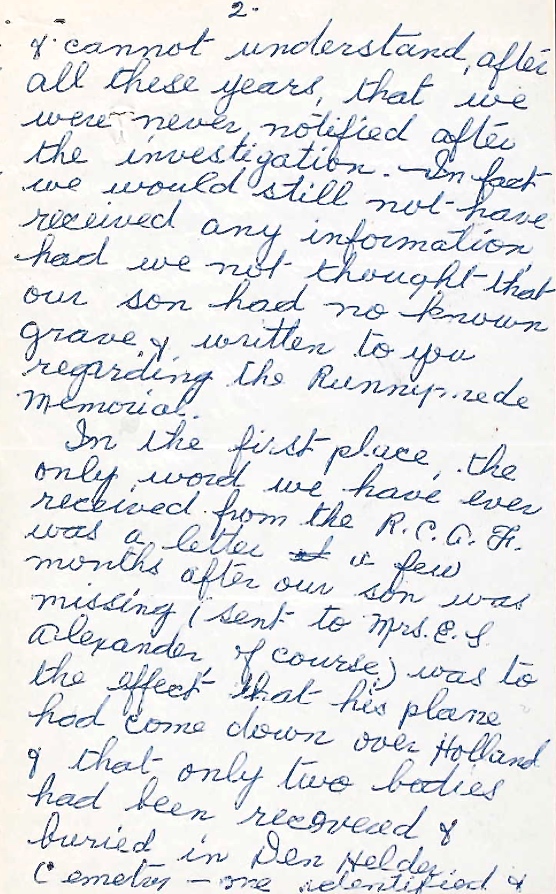 2.
& cannot understand, after
all these years, that we
were never notified after
the investigation. - In fact
we would still not have
received any information
had we not thought that
our son had no known
grave & written to you
regarding the Runnymede
Memorial.
In the first place, the
only word we have ever
received from the R.C.A.F.
was a letter a few
months after our son was
missing (sent to Mrs. E. S.
Alexander, of course) was to
the effect that his plane
had come down over Holland
& that only two bodies
had been recovered &
buried in Den Helder
Cemetry - one identified &